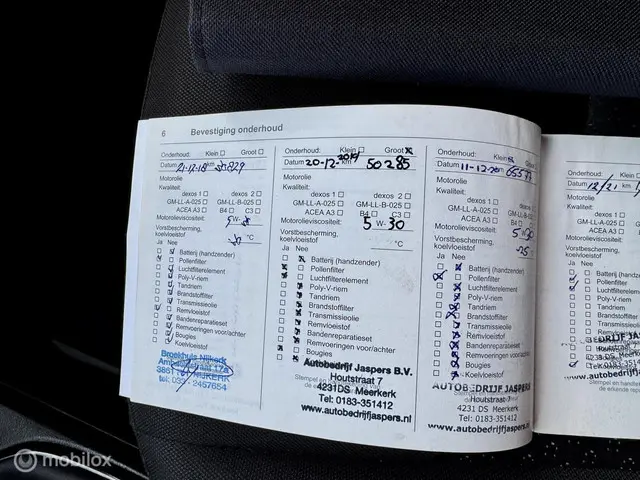 6 Bevestiging onderhoud
Onderhoud: Klein Groot
Datum 21-12-18 km
Motorolie
Kwaliteit:
dexos 1 dexos 2
GM-LL-A-025 GM-LL-B-025
ACEA A3 B4 C3
Motorolieviscositeit: 5 W
Vorstbescherming,
koelvloeistof °C
Ja Nee
Batterij (handzender)
Pollenfilter
Luchtfilterelement
Poly-V-riem
Tandriem
Brandstoffilter
Transmissieolie
Remvloeistof
Bandenreparatieset
Remvoeringen voor/achter
Bougies
Koelvloeistof
Broekhuis Nijkerk
Ambachtsstraat 17a
NIJKERK
tel. 2457654
Onderhoud: Klein Groot
Datum 20-12-2019 km 50285
Motorolie
Kwaliteit:
dexos 1 dexos 2
GM-LL-A-025 GM-LL-B-025
ACEA A3 B4 C3
Motorolieviscositeit: 5 W-30
Vorstbescherming,
koelvloeistof °C
Ja Nee
Batterij (handzender)
Pollenfilter
Luchtfilterelement
Poly-V-riem
Tandriem
Brandstoffilter
Transmissieolie
Remvloeistof
Bandenreparatieset
Remvoeringen voor/achter
Bougies
Autobedrijf Jaspers B.V.
Houtstraat 7
4231DS Meerkerk
Tel: 0183-351412
www.autobedrijfjaspers.nl
Onderhoud: Klein Groot
Datum 11-12-20 km
Motorolie
Kwaliteit:
dexos 1 dexos 2
GM-LL-A-025 GM-LL-B-025
ACEA A3 B4 C3
Motorolieviscositeit: 5 30
Vorstbescherming,
koelvloeistof
Ja Nee
Batterij (handzender)
Pollenfilter
Luchtfilterelement
Poly-V-riem
Tandriem
Brandstoffilter
Transmissieolie
Remvloeistof
Bandenreparatieset
Remvoeringen voor/achter
Bougies
Koelvloeistof
AUTOBEDRIJF JASPERS
Houtstraat 7
4231 DS Meerkerk
Tel: 0183-351412
www.autobedrijfjaspers.nl
Onderhoud: Klein
Datum 12/21 km
Motorolie
Kwaliteit:
dexos 1
GM-LL-A-025
ACEA A3
Motorolieviscositeit:
Vorstbescherming,
koelvloeistof
Ja Nee
Batterij
Pollenfilter
Luchtfilterelement
Poly-V-riem
Tandriem
Brandstoffilter
Transmissieolie
mobilox